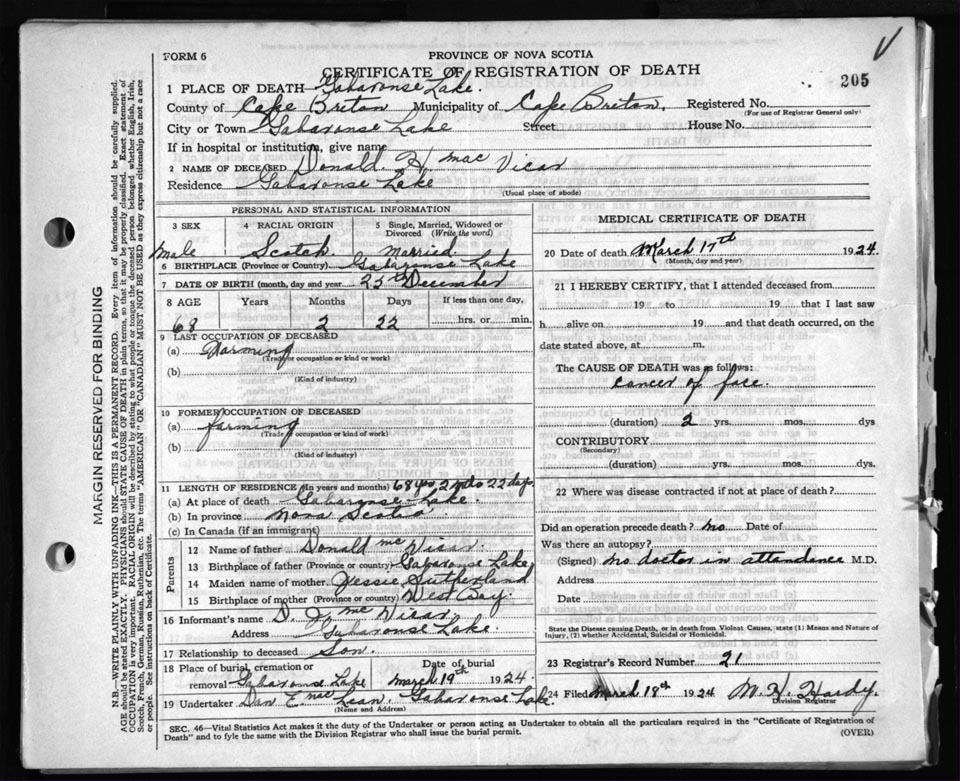 FORM 6
PROVINCE OF NOVA SCOTIA
CERTIFICATE OF REGISTRATION OF DEATH
205
1 PLACE OF DEATH Gabarouse Lake.
County of Cape Breton Municipality of Cape Breton. Registered No.
(For use of Registrar General only)
City or Town Gabarouse Lake Street House No.
If in hospital or institution, give name
2 NAME OF DECEASED Donald H Mac Vicar
Residence Gabarouse Lake
(Usual place of abode)
PERSONAL AND STATISTICAL INFORMATION
3 SEX 4 RACIAL ORIGIN 5 Single, Married, Widowed or Divorced (Write the word)
Male Scotch Married.
6 BIRTHPLACE (Province or Country) Gabarouse Lake
7 DATE OF BIRTH (month, day and year) 25th December
8 AGE Years Months Days If less than one day,
68 2 22 hrs. or min.
9 LAST OCCUPATION OF DECEASED
(a) Farming
(Trade or occupation or kind or work)
(b)
(Kind of industry)
10 FORMER OCCUPATION OF DECEASED
(a) farming
(Trade or occupation or kind of work)
(b)
(Kind of industry)
11 LENGTH OF RESIDENCE (In years and months) 68 yrs 2 mo 22 days
(a) At place of death Gabarouse Lake.
(b) In province Nova Scotia
(c) In Canada (if an immigrant)
Parents
12 Name of father Donald Mc Vicar.
13 Birthplace of father (Province or country) Gabarouse Lake
14 Maiden name of mother Jessie Sutherland
15 Birthplace of mother (Province or country) West Bay.
16 Informant's name D. J. Mc Vicar
Address Gabarouse Lake.
17 Relationship to deceased Son.
18 Place of burial, cremation or removal Gabarouse Lake Date of burial March 19th 1924.
19 Undertaker Dan E. Mac Lean. Gabarouse Lake.
(Name and Address)
MEDICAL CERTIFICATE OF DEATH
20 Date of death March 17th 1924.
(Month, day and year)
21 I HEREBY CERTIFY, that I attended deceased from
19 to 19 that I last saw
h alive on 19 and that death occurred, on the
date stated above, at m.
The CAUSE OF DEATH was as follows:
Cancer of face.
(duration) 2 yrs. mos. dys
CONTRIBUTORY
(Secondary)
(duration) yrs. mos. dys.
22 Where was disease contracted if not at place of death?
Did an operation precede death? no Date of
Was there an autopsy?
(Signed) no doctor in attendance M.D.
Address
Date
State the Disease causing Death, or in death from Violent Causes, state (1) Means and Nature of Injury, (2) whether Accidental, Suicidal or Homicidal.
23 Registrar's Record Number 21
24 Filed March 18th 1924 M. H. Hardy.
Division Registrar
SEC. 46—Vital Statistics Act makes it the duty of the Undertaker or person acting as Undertaker to obtain all the particulars required in the "Certificate of Registration of
Death" and to fyle the same with the Division Registrar who shall issue the burial permit.
(OVER)
MARGIN RESERVED FOR BINDING
N.B.—WRITE PLAINLY, WITH UNFADING INK—THIS IS A PERMANENT RECORD. Every item of information should be carefully supplied.
AGE should be stated EXACTLY. PHYSICIANS should STATE CAUSE OF DEATH in plain terms, so that it may be properly classified. Exact statement of
OCCUPATION is very important. RACIAL ORIGIN will be described by stating to what people or tongue the deceased person belonged whether English, Irish,
Scotch, French, German, Russian, Ruthenian, etc. The terms "AMERICAN" OR "CANADIAN" MUST NOT BE USED as they express citizenship but not a race
or people. See instructions on back of Certificate.